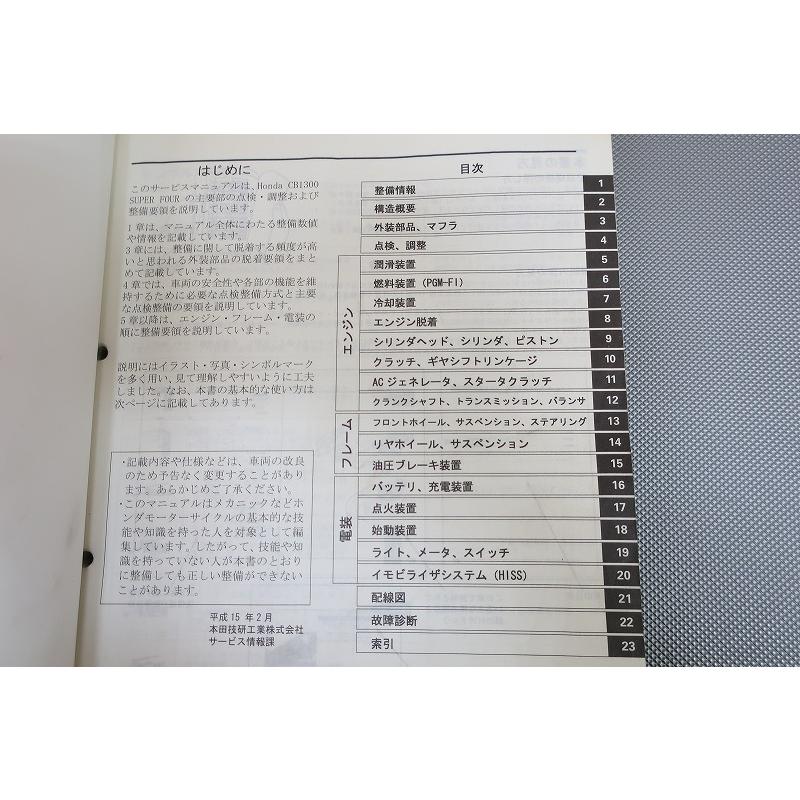 はじめに
このサービスマニュアルは、Honda CB1300
SUPER FOUR の主要部の点検・調整および
整備要領を説明しています。
1 章は、マニュアル全体にわたる整備数値
や情報を記載しています。
3 章には、整備に関して脱着する頻度が高
いと思われる外装部品の脱着要領をまと
めて記載しています。
4 章では、車両の安全性や各部の機能を維
持するために必要な点検整備方式と主要
な点検整備の要領を説明しています。
5 章以降は、エンジン・フレーム・電装の
順に整備要領を説明しています。
説明にはイラスト・写真・シンボルマーク
を多く用い、見て理解しやすいように工夫
しました。なお、本書の基本的な使い方は
次ページに記載してあります。
・記載内容や仕様などは、車両の改良
のため予告なく変更することがあり
ます。あらかじめご了承ください。
・このマニュアルはメカニックなどホ
ンダモーターサイクルの基本的な技
能や知識を持った人を対象として編
集しています。したがって、技能や知
識を持っていない人が本書のとおり
に整備しても正しい整備ができない
ことがあります。
平成 15 年 2 月
本田技研工業株式会社
サービス情報課
目次
整備情報 1
構造概要 2
外装部品、マフラ 3
点検、調整 4
エンジン
潤滑装置 5
燃料装置 (PGM-FI) 6
冷却装置 7
エンジン脱着 8
シリンダヘッド、シリンダ、ピストン 9
クラッチ、ギヤシフトリンケージ 10
AC ジェネレータ、スタータクラッチ 11
クランクシャフト、トランスミッション、バランサ 12
フレーム
フロントホイール、サスペンション、ステアリング 13
リヤホイール、サスペンション 14
油圧ブレーキ装置 15
電装
バッテリ、充電装置 16
点火装置 17
始動装置 18
ライト、メータ、スイッチ 19
イモビライザシステム (HISS) 20
配線図 21
故障診断 22
索引 23